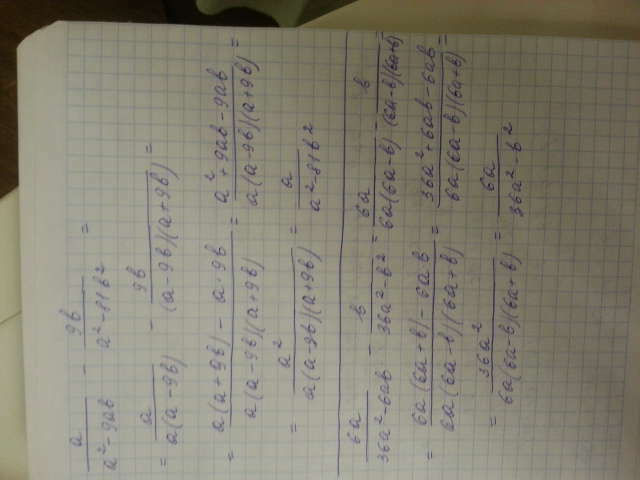 a/(a²-9ab) - 9b/(a²-81b²) =
= a/(a(a-9b)) - 9b/((a-9b)(a+9b)) =
= (a(a+9b) - a·9b)/(a(a-9b)(a+9b)) = (a²+9ab-9ab)/(a(a-9b)(a+9b)) =
= a²/(a(a-9b)(a+9b)) = a/(a²-81b²)
6a/(36a²-6ab) - b/(36a²-b²) = 6a/(6a(6a-b)) - b/((6a-b)(6a+b)) =
= (6a(6a+b)-6ab)/(6a(6a-b)(6a+b)) = (36a²+6ab-6ab)/(6a(6a-b)(6a+b)) =
= 36a²/(6a(6a-b)(6a+b)) = 6a/(36a²-b²)